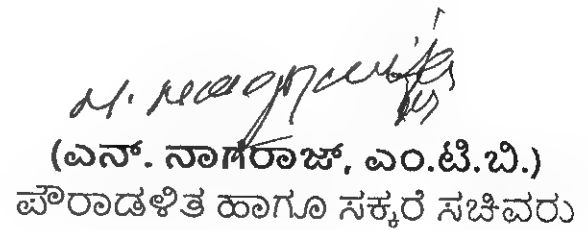 (ಎನ್. ನಾಗರಾಜ್, ಎಂ.ಟಿ.ಬಿ.)
ಪೌರಾಡಳಿತ ಹಾಗೂ ಸಕ್ಕರೆ ಸಚಿವರು